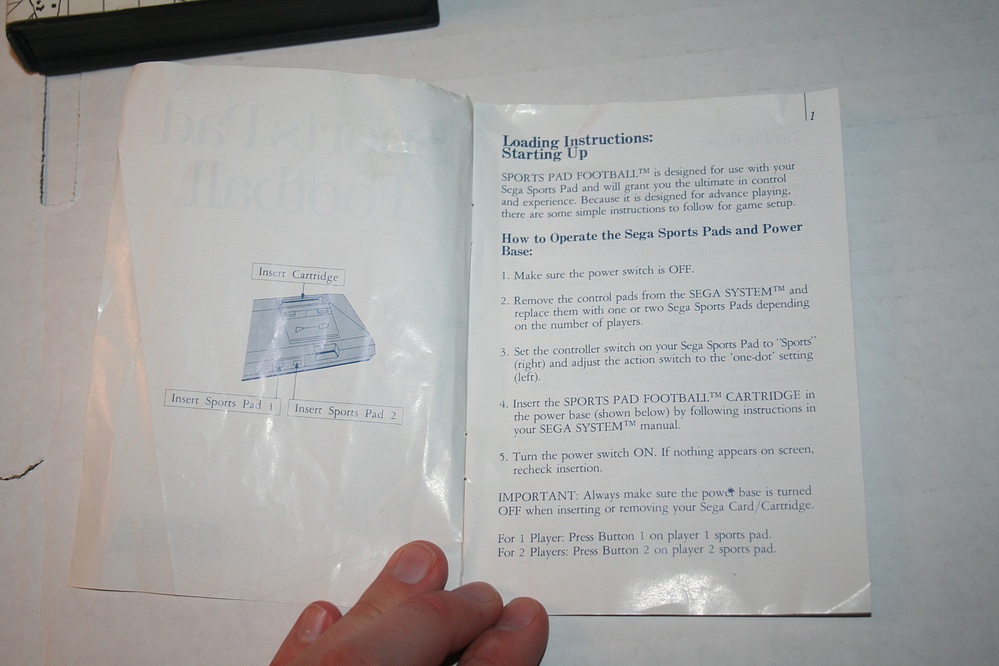 Insert Cartridge
Insert Sports Pad 1
Insert Sports Pad 2
1
Loading Instructions:
Starting Up
SPORTS PAD FOOTBALL™ is designed for use with your
Sega Sports Pad and will grant you the ultimate in control
and experience. Because it is designed for advance playing,
there are some simple instructions to follow for game setup.
How to Operate the Sega Sports Pads and Power
Base:
1. Make sure the power switch is OFF.
2. Remove the control pads from the SEGA SYSTEM™ and
replace them with one or two Sega Sports Pads depending
on the number of players.
3. Set the controller switch on your Sega Sports Pad to "Sports"
(right) and adjust the action switch to the 'one-dot' setting
(left).
4. Insert the SPORTS PAD FOOTBALL™ CARTRIDGE in
the power base (shown below) by following instructions in
your SEGA SYSTEM™ manual.
5. Turn the power switch ON. If nothing appears on screen,
recheck insertion.
IMPORTANT: Always make sure the power base is turned
OFF when inserting or removing your Sega Card/Cartridge.
For 1 Player: Press Button 1 on player 1 sports pad.
For 2 Players: Press Button 2 on player 2 sports pad.